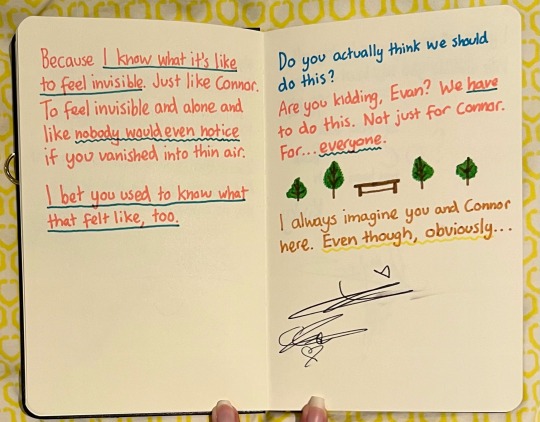 Because I know what it's like
to feel invisible. Just like Connor.
To feel invisible and alone and
like nobody would even notice
if you vanished into thin air.
I bet you used to know what
that felt like, too.
Do you actually think we should
do this?
Are you kidding, Evan? We have
to do this. Not just for Connor.
For...everyone.
I always imagine you and Connor
here. Even though, obviously...